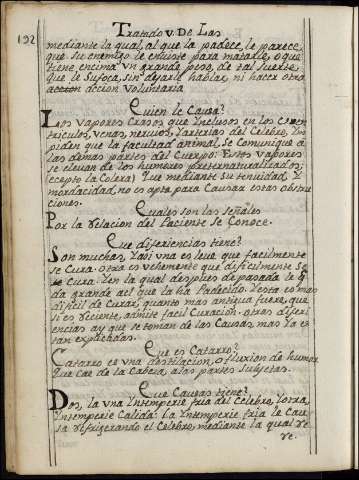 192
Tratado V. De Las
mediante la qual, al que la padece, le parece,
que su enemigo le embiste para matarle, o que
tiene encima un grande peso, de tal suerte,
que le sufoca, sin dejarle hablar, ni hacer otra
accion voluntaria
Quien le Causa?
Los vapores Crasos que Inclusos en los
triculos, venas, nervios, Yarterias del Celebro, Im
piden que la facultad animal, se Comunique à
las demas partes del Cuerpo: Estos vapores
se elevan de los humores preternaturalizados,
(ecepto la Colera) Que mediante su tenuidad, Y
mordacidad, no es apta para Causar estas obstru
ciones.
Quales son las señales
Por la relacion del Paciente se Conoce.
Que diferiencias tiene?
Son muchas, Yaði una es leve que facilmente
se Cura. otra es vehemente que dificilmente Se
Cura: Yen la qual despues de pasada le q
da grande mal que la ha Padecido: Yesta es mas
dificil de Curar, quanto mas antigua fuere, que
si es reciente, admite facil Curacion. otras diferi
encias ay que se toman de las Causas, mas Ya es
tan explicadas.
Que es Catarro?
Catarro es una destilacion, o fluxion de humor
Que cae de la Cabeza, alas partes subjetas.
Que Causas tiene?
Dos, la una Intemperie fria del Celebro, Lotra,
Intemperie Calida: La Intemperie fria le Cau
sa refrigerando el Celebro, mediante la qual re
re.